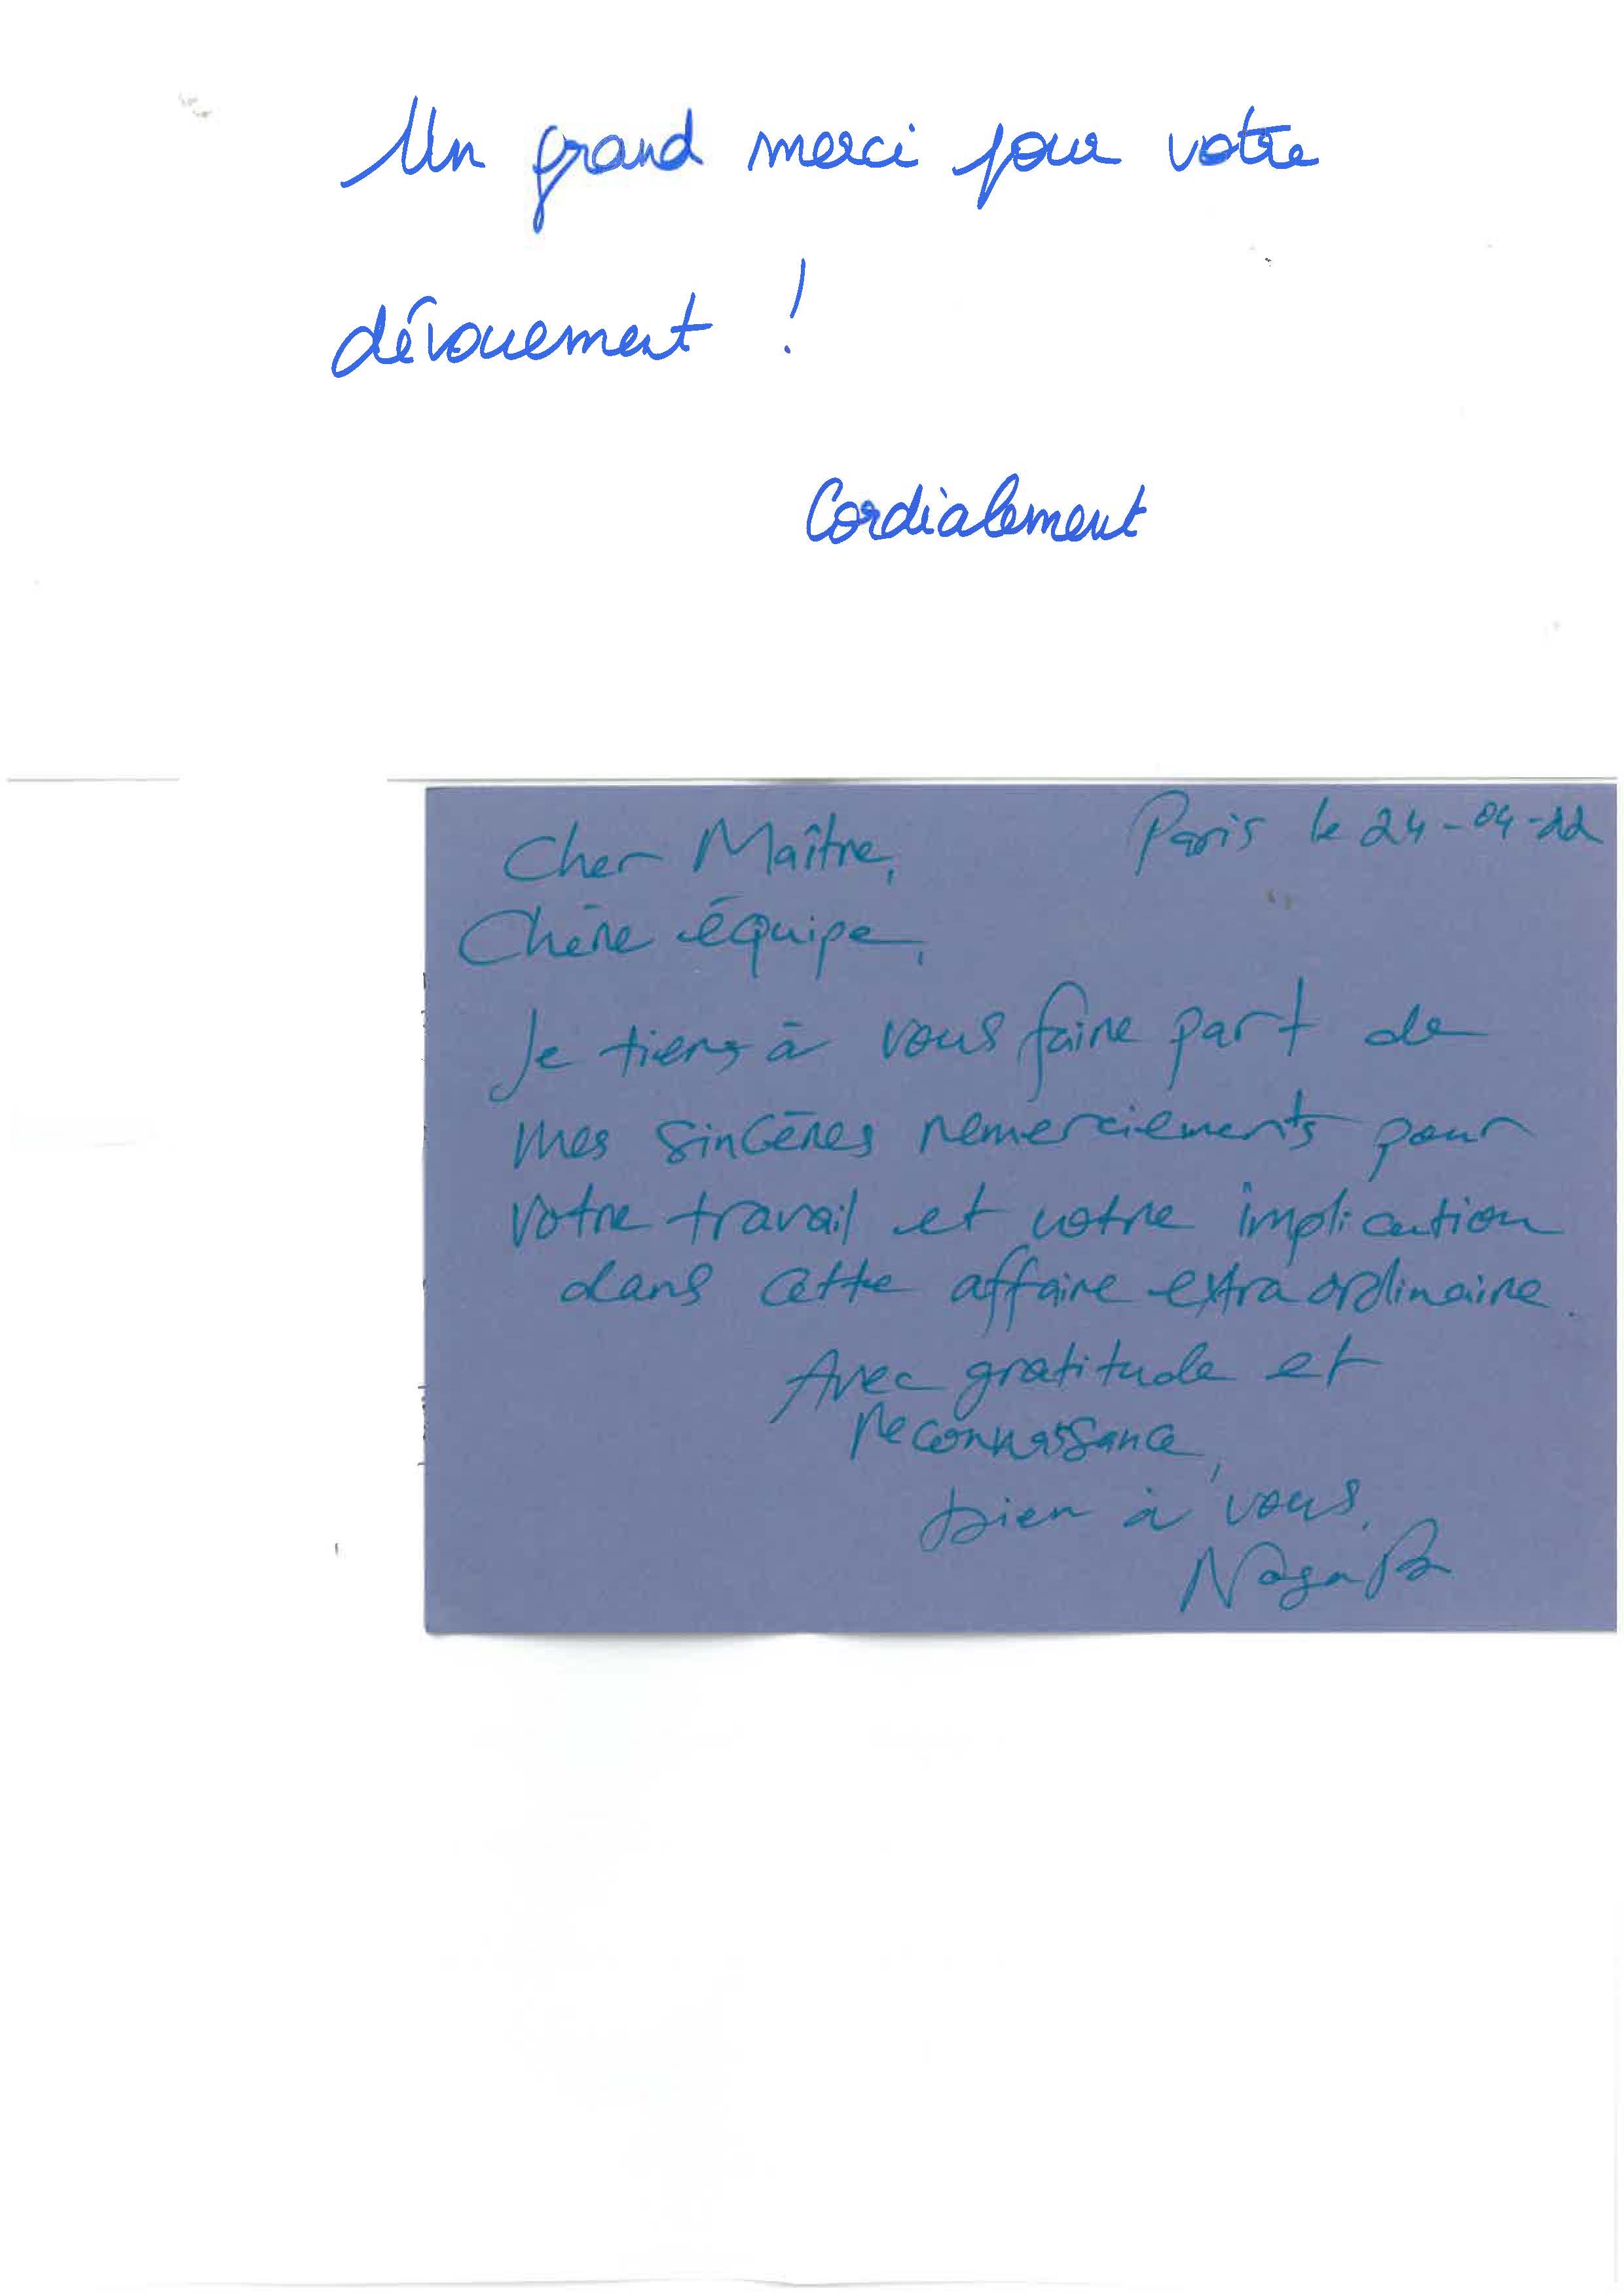 Un grand merci pour votre
dévouement !
Cordialement
Paris le 24-04-22
Cher Maître,
Chère équipe,
Je tiens à vous faire part de
mes sincères remerciements pour
votre travail et votre implication
dans cette affaire extraordinaire.
Avec gratitude et
reconnaissance,
bien à vous,